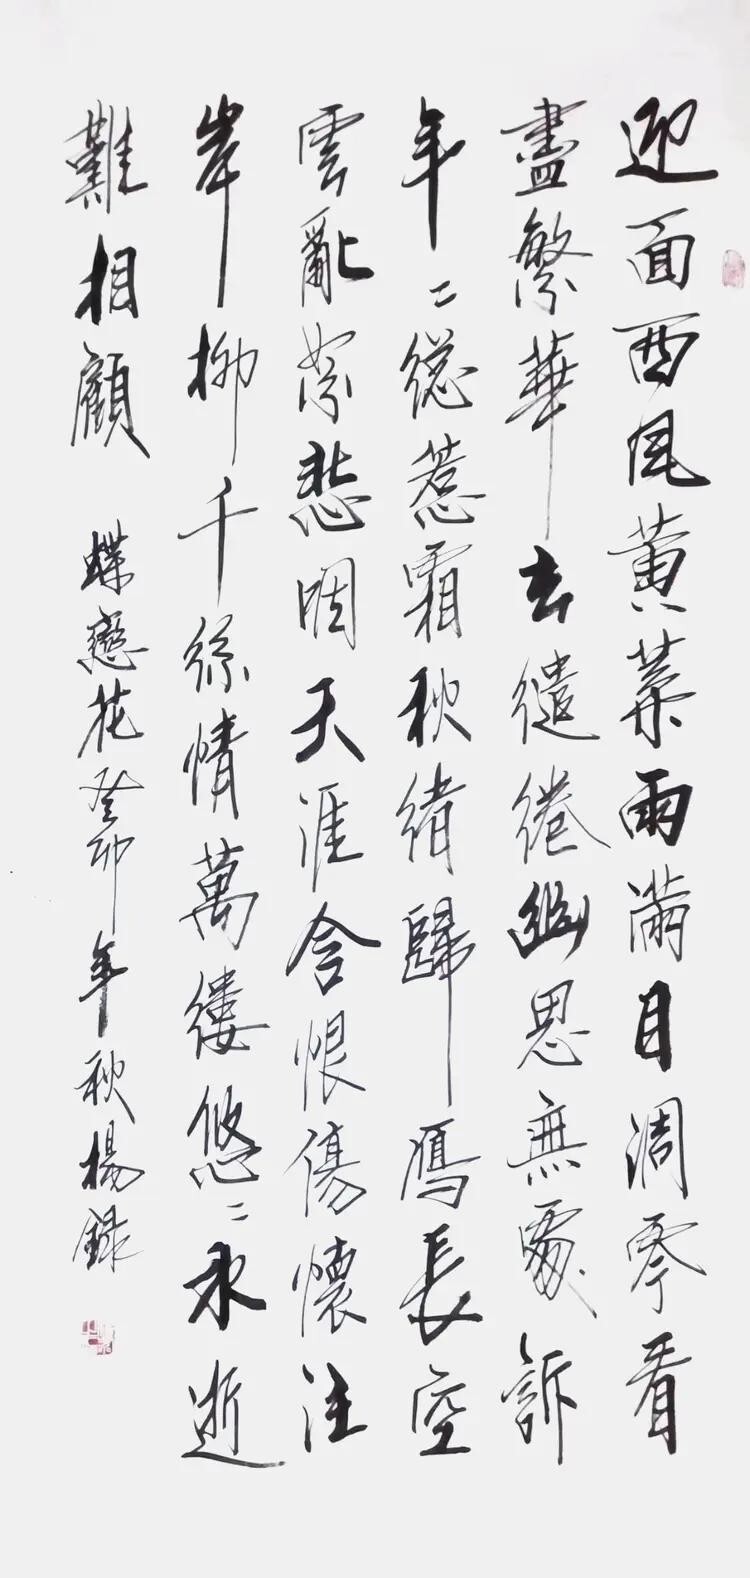 迎面西風黃葉雨滿目凋零看
盡繁華去繾綣幽思無處訴
年々總惹霜秋緒歸雁長空
雲亂絮悲咽天涯含恨傷懷注
岸柳千絲情萬縷悠々永逝
難相顧 蝶戀花癸卯年秋楊錄